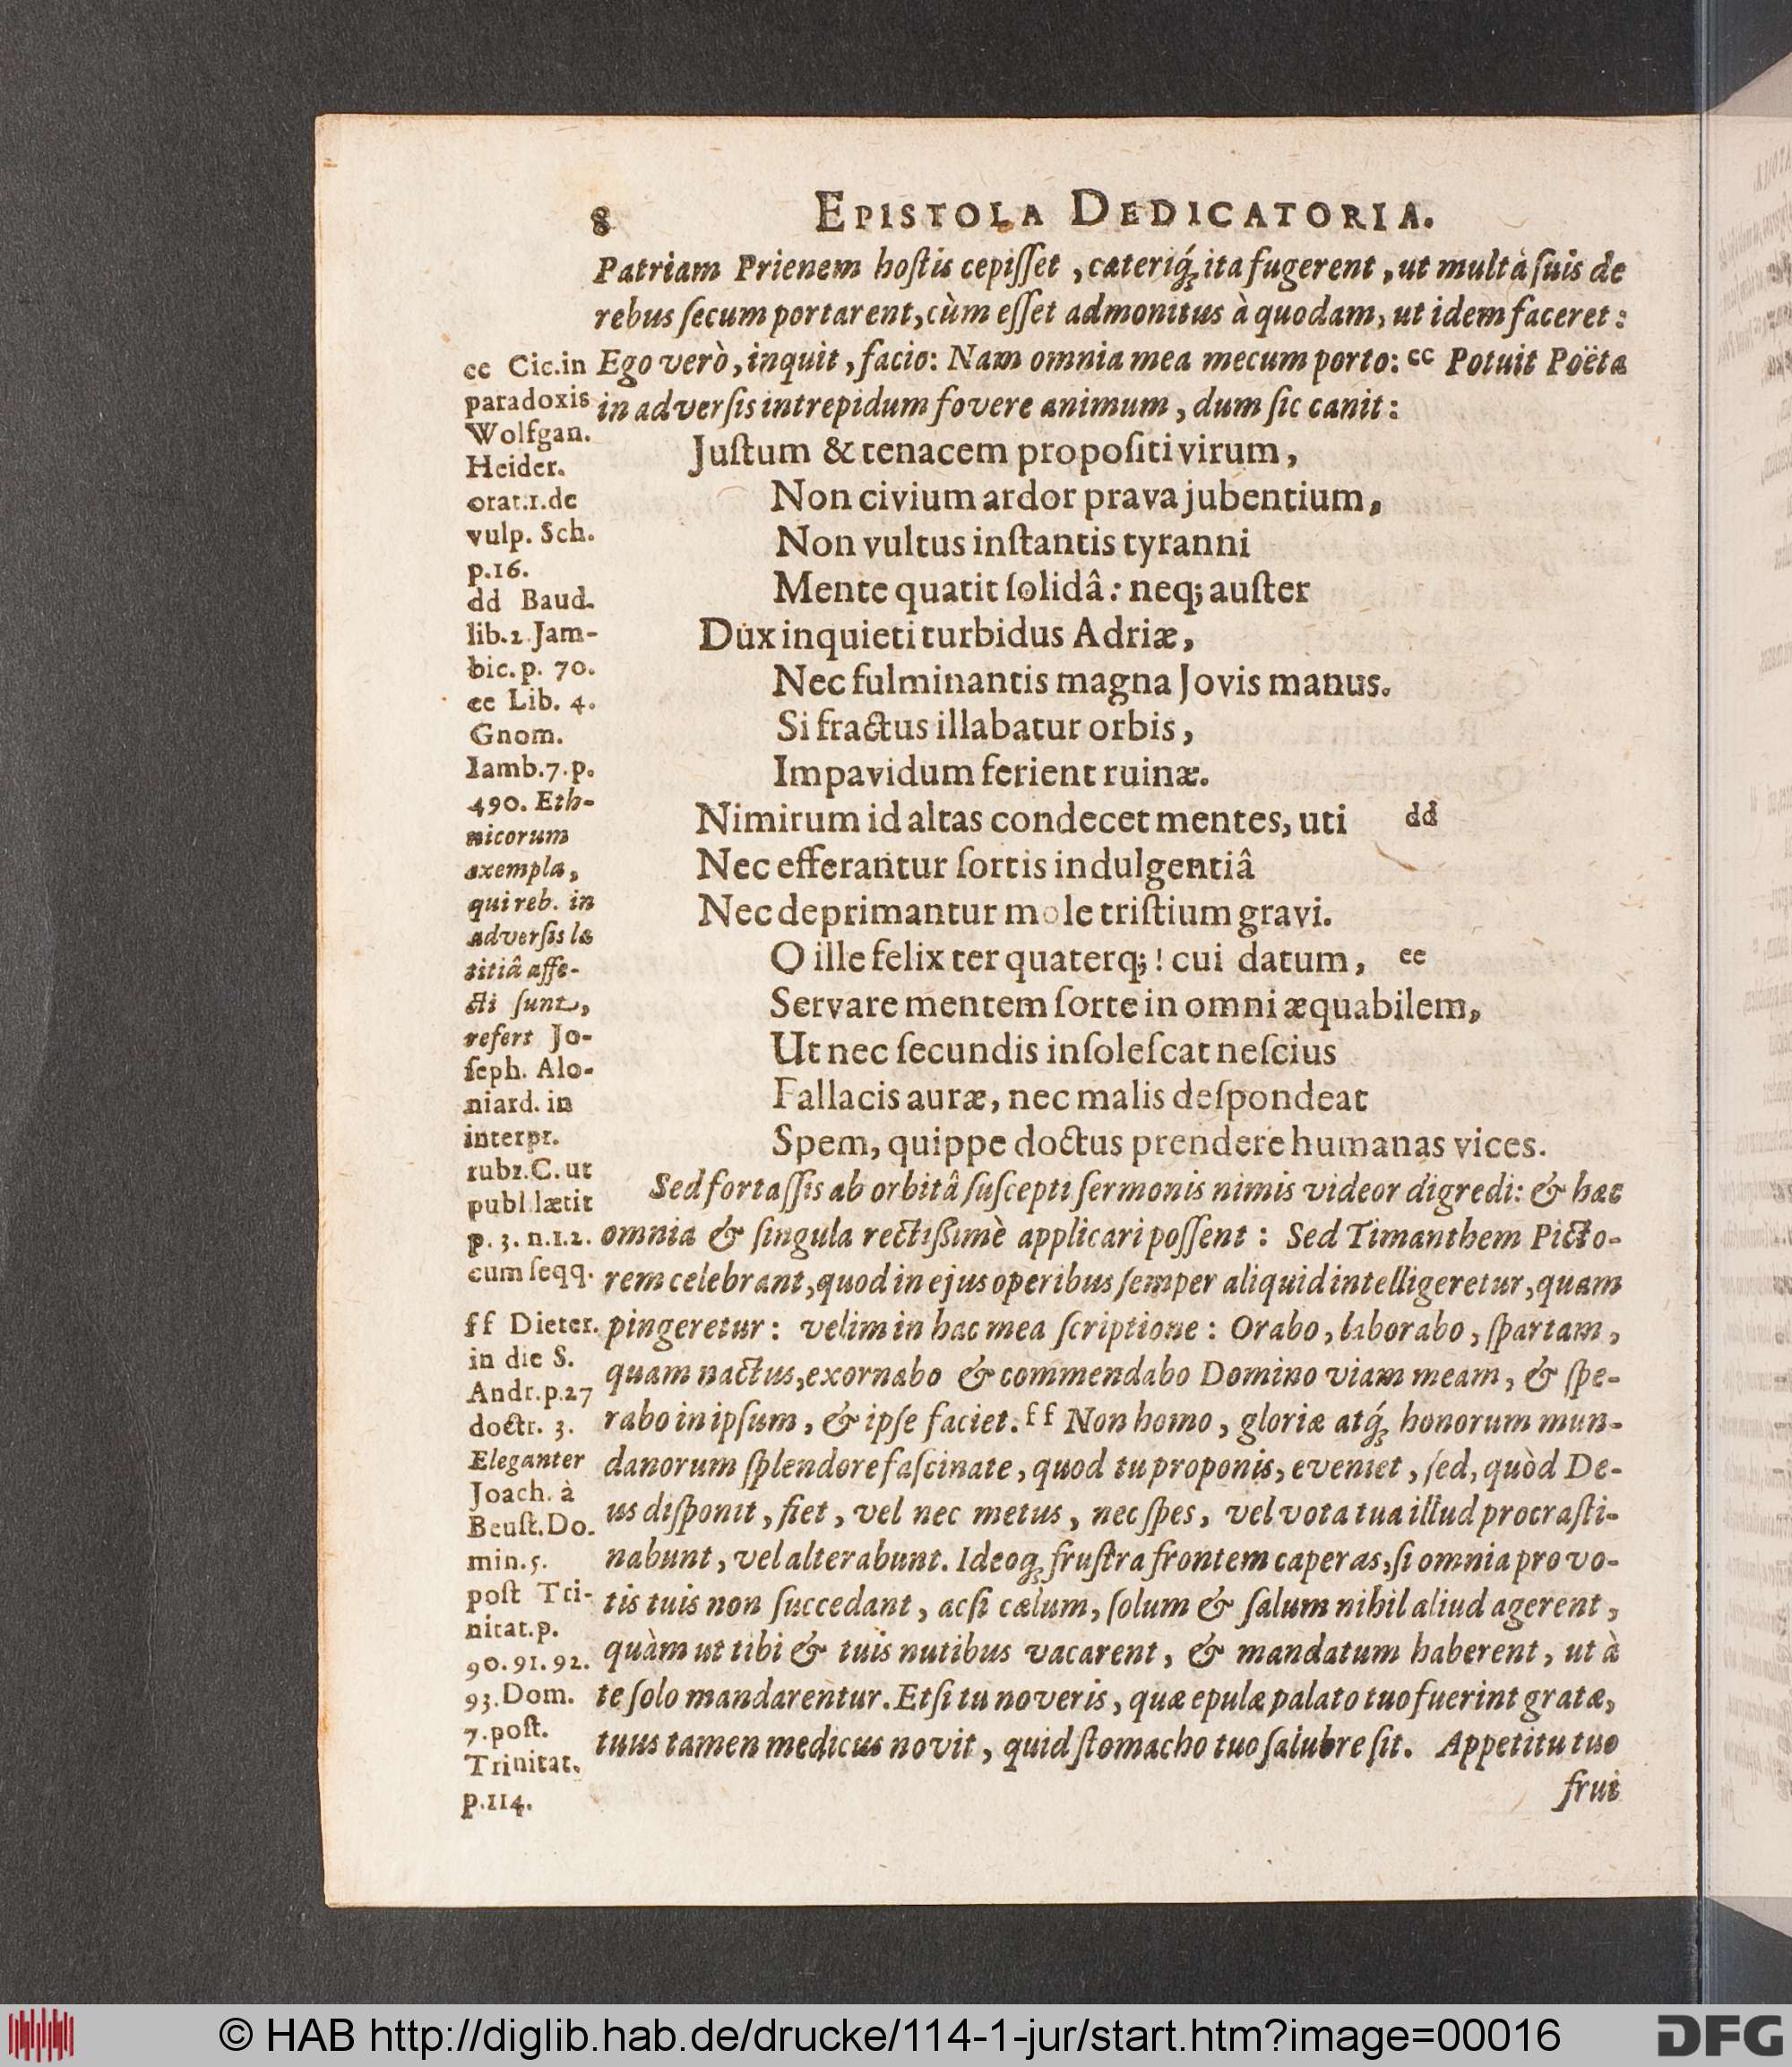 8 EPISTOLA DEDICATORIA.
Patriam Prienem hoſtis cepiſſet, cateriq́; ita fugerent, ut multa ſuis de
rebus ſecum portarent, cùm eſſet admonitus à quodam, ut idem faceret:
Ego verò, inquit, facio: Nam omnia mea mecum porto: cc Potuit Poëta
in adverſis intrepidum fovere animum, dum ſic canit:
Juſtum & tenacem propoſiti virum,
Non civium ardor prava jubentium,
Non vultus inſtantis tyranni
Mente quatit ſolidâ: neq; auſter
Dux inquieti turbidus Adriæ,
Nec fulminantis magna Jovis manus.
Si fractus illabatur orbis,
Impavidum ferient ruinæ.
Nimirum id altas condecet mentes, uti dd
Nec efferantur ſortis indulgentiâ
Nec deprimantur mole triſtium gravi.
O ille felix ter quaterq;! cui datum, ee
Servare mentem ſorte in omni æquabilem,
Ut nec ſecundis inſoleſcat neſcius
Fallacis auræ, nec malis deſpondeat
Spem, quippe doctus prendere humanas vices.
Sed fortaſſis ab orbitâ ſuſcepti ſermonis nimis videor digredi: & hæc
omnia & ſingula rectiſſimè applicari poſſent: Sed Timanthem Picto-
rem celebrant, quod in ejus operibus ſemper aliquid intelligeretur, quam
pingeretur: velim in hac mea ſcriptione: Orabo, laborabo, ſpartam,
quam nactus, exornabo & commendabo Domino viam meam, & ſpe-
rabo in ipſum, & ipſe faciet. ff Non homo, gloriæ atq́; honorum mun-
danorum ſplendore faſcinate, quod tu proponis, eveniet, ſed, quòd De-
us diſponit, fiet, vel nec metus, nec ſpes, vel vota tua illud procraſti-
nabunt, vel alterabunt. Ideoq; fruſtra frontem caperas, ſi omnia pro vo-
tis tuis non ſuccedant, acſi cælum, ſolum & ſalum nihil aliud agerent,
quàm ut tibi & tuis nutibus vacarent, & mandatum haberent, ut à
te ſolo mandarentur. Etſi tu noveris, quæ epulæ palato tuo fuerint gratæ,
tuus tamen medicus novit, quid ſtomacho tuo ſalubre ſit. Appetitu tuo
frui
cc Cic. in
paradoxis
Wolfgan.
Heider.
orat. 1. de
vulp. Sch.
p. 16.
dd Baud.
lib. 2 Jam-
bic. p. 70.
ee Lib. 4.
Gnom.
Iamb. 7. p.
490. Eth-
nicorum
exempla,
qui reb. in
adverſis læ
titiâ affe-
cti ſunt,
refert Jo-
ſeph. Alo-
niard. in
interpr.
rubr. C. ut
publ lætit
p. 3. n. 1. 2.
cum ſeqq.
ff Dieter.
in die S.
Andr. p. 27
doctr. 3.
Eleganter
Joach. à
Beuſt. Do.
min. 5.
poſt Tri-
nitat. p.
90. 91. 92.
93. Dom.
7. poſt.
Trinitat.
p. 114.
© HAB http://diglib.hab.de/drucke/114-1-jur/start.htm?image=00016
DFG